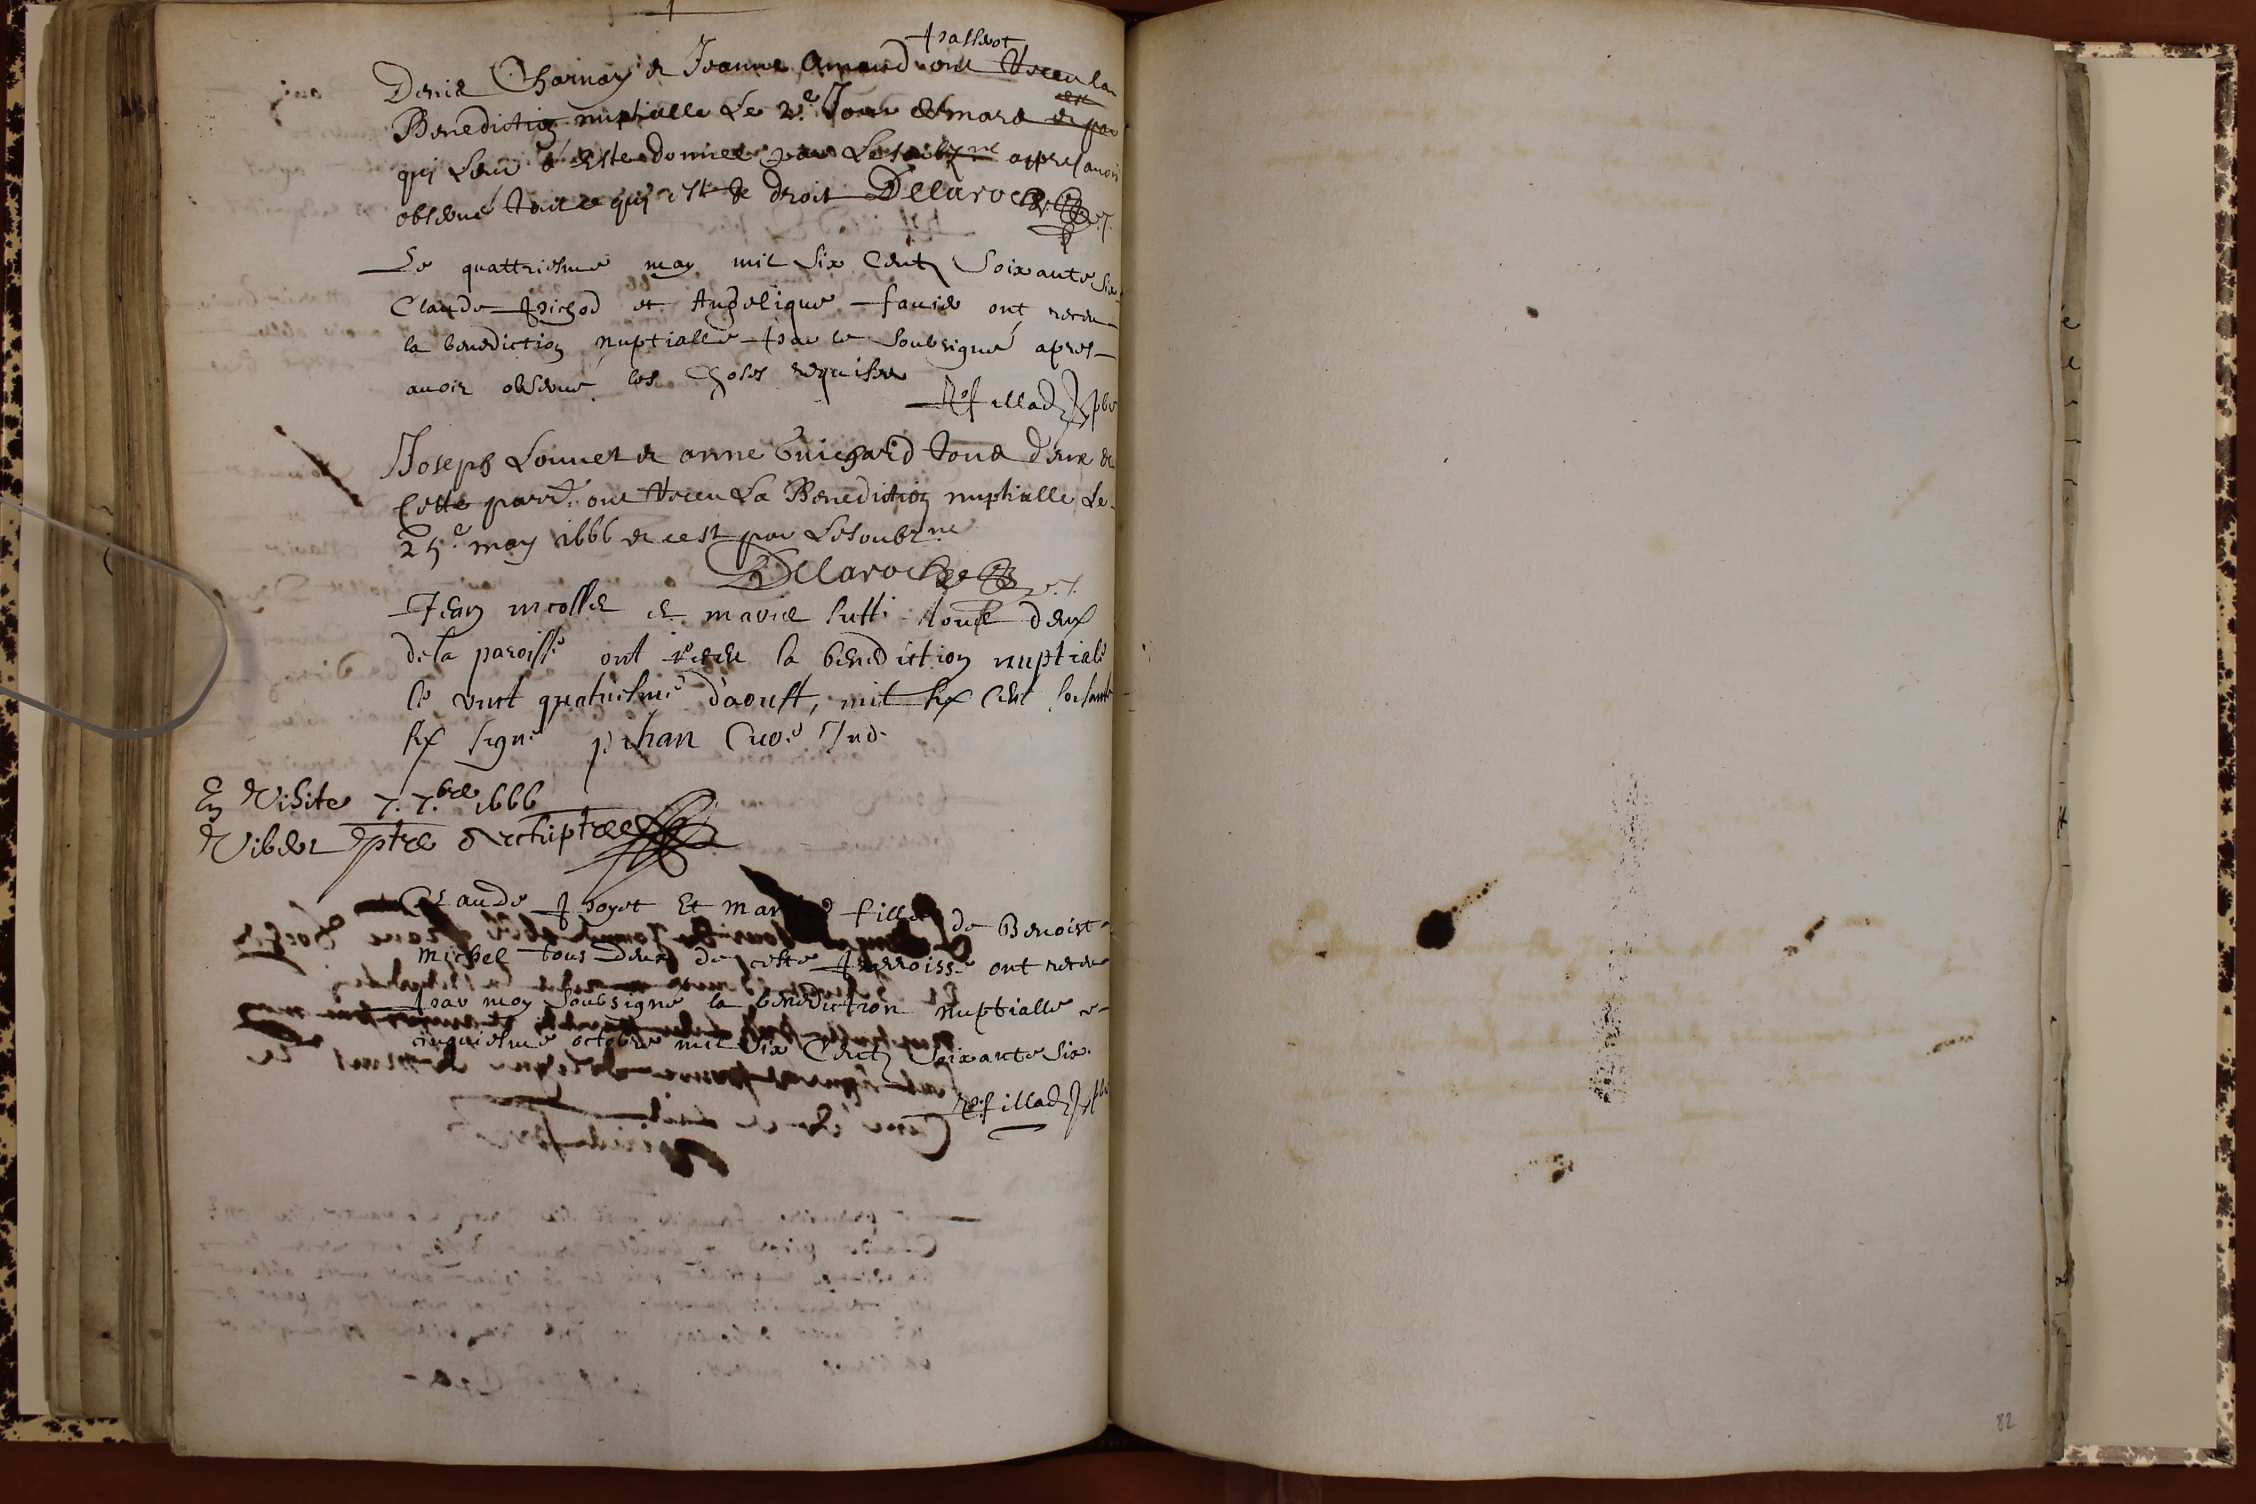 passeot
Denis Charnay et Jeanne Amand ont Receu la
Benediction nuptialle Le 2.e Jour de mars
qui Leur a Esté donnee par Lesoubz.ne apres avoir
observé tout ce qui est de droit Delaroche
Le quattriesme may mil six Centz Soixante six
Claude Pichod et Angelique fauie ont receu
la benediction nuptialle par le Soubsigné apres
avoir observé les choses requises
Refilladz pbr
Joseph Louuer et anne Guichard tous deux de
Cette parr. ont Receu La Benediction nuptialle Le
25.e may 1666 et ce est par Lesoubz.ne
Delaroche
Jean nicollet et marie sutti tous deux
de la paroisse ont receu la benediction nuptiale
le vint quatriesme d'aoust, mil six cent soisante
six signé
En Visite 7. 7.bre 1666
Viber ptre Archiptre
Claude Poyet Et fille de Benoist
Michel tous deux de ceste parroisse ont receu
par moy Soubsigné la benediction nuptialle ce
cinquiesme octobre mil six Centz Soixante six
Refilladz pbr
82